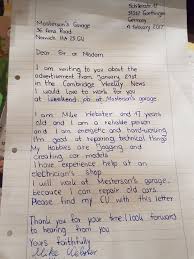 Masterson's Garage
36 Bend Road
Norwich 11A 23 GU
37217
Germany
4 February 2017
Dear Sir or Madam
I am writing to you about the
advertisement from January 21st
in the Cambridge Weekly News
I would love to work for you
at Weekend job at Masterson's garage.
I am Mike Webster and 17 years
old and I am a reliable person
and I am energetic and hard-working.
I'm good at repairing technical things
My hobbies are jogging and
creating car models
I have experience help at an
electrician's shop
I will work at Masterson's garage
because I can repair old cars.
Please find my CV with this letter
Thank you for your time. I look forward
to hearing from you
Yours faithfully
Mike Webster